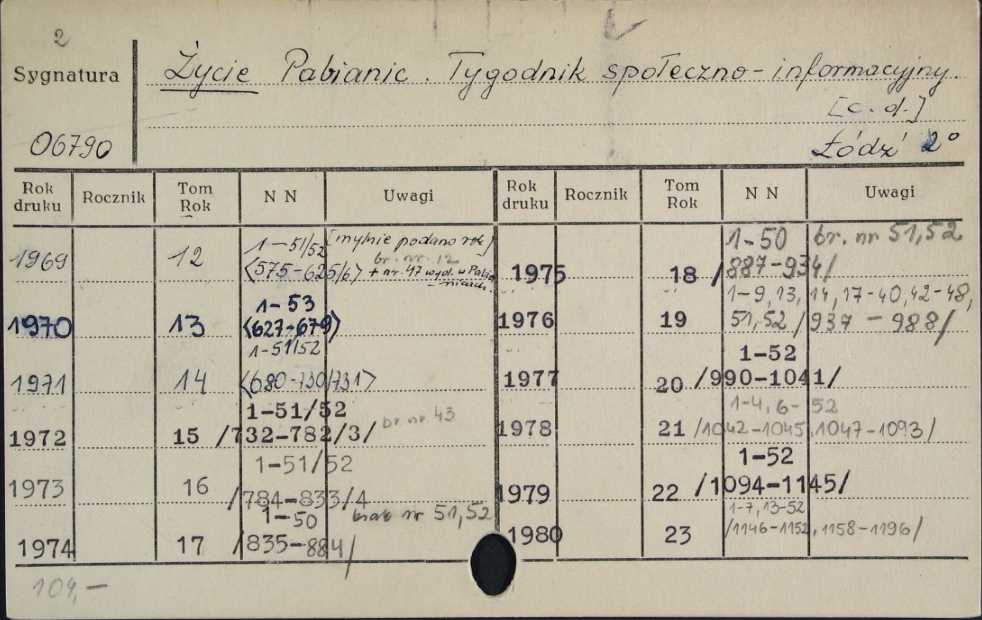 2
Sygnatura
Życie Pabianic. Tygodnik społeczno-informacyjny.
[c.d.]
06790
Łódź 2°
Rok druku Rocznik Tom Rok N N Uwagi Rok druku Rocznik Tom Rok N N Uwagi
1969 12 1-51/52 [mylnie podano rok]
<575-625/6> br. nr. 12
+ nr. 47 wyd. w Pabianicach
1970 13 1-53
<627-679>
1971 14 1-51/52
<680-730/731>
1972 15 1-51/52
/732-782/3/ br. nr 43
1973 16 1-51/52
/784-833/4
1974 17 1-50 brak nr 51,52
/835-884/
1975 18 1-50 br. nr 51,52
/887-934/
1976 19 1-9, 13, 14, 17-40, 42-48,
51,52 /937-988/
1977 20 1-52
/990-1041/
1978 21 1-4, 6-52
/1042-1045, 1047-1093/
1979 22 1-52
/1094-1145/
1980 23 1-7, 13-52
/1146-1152, 1158-1196/
104,-